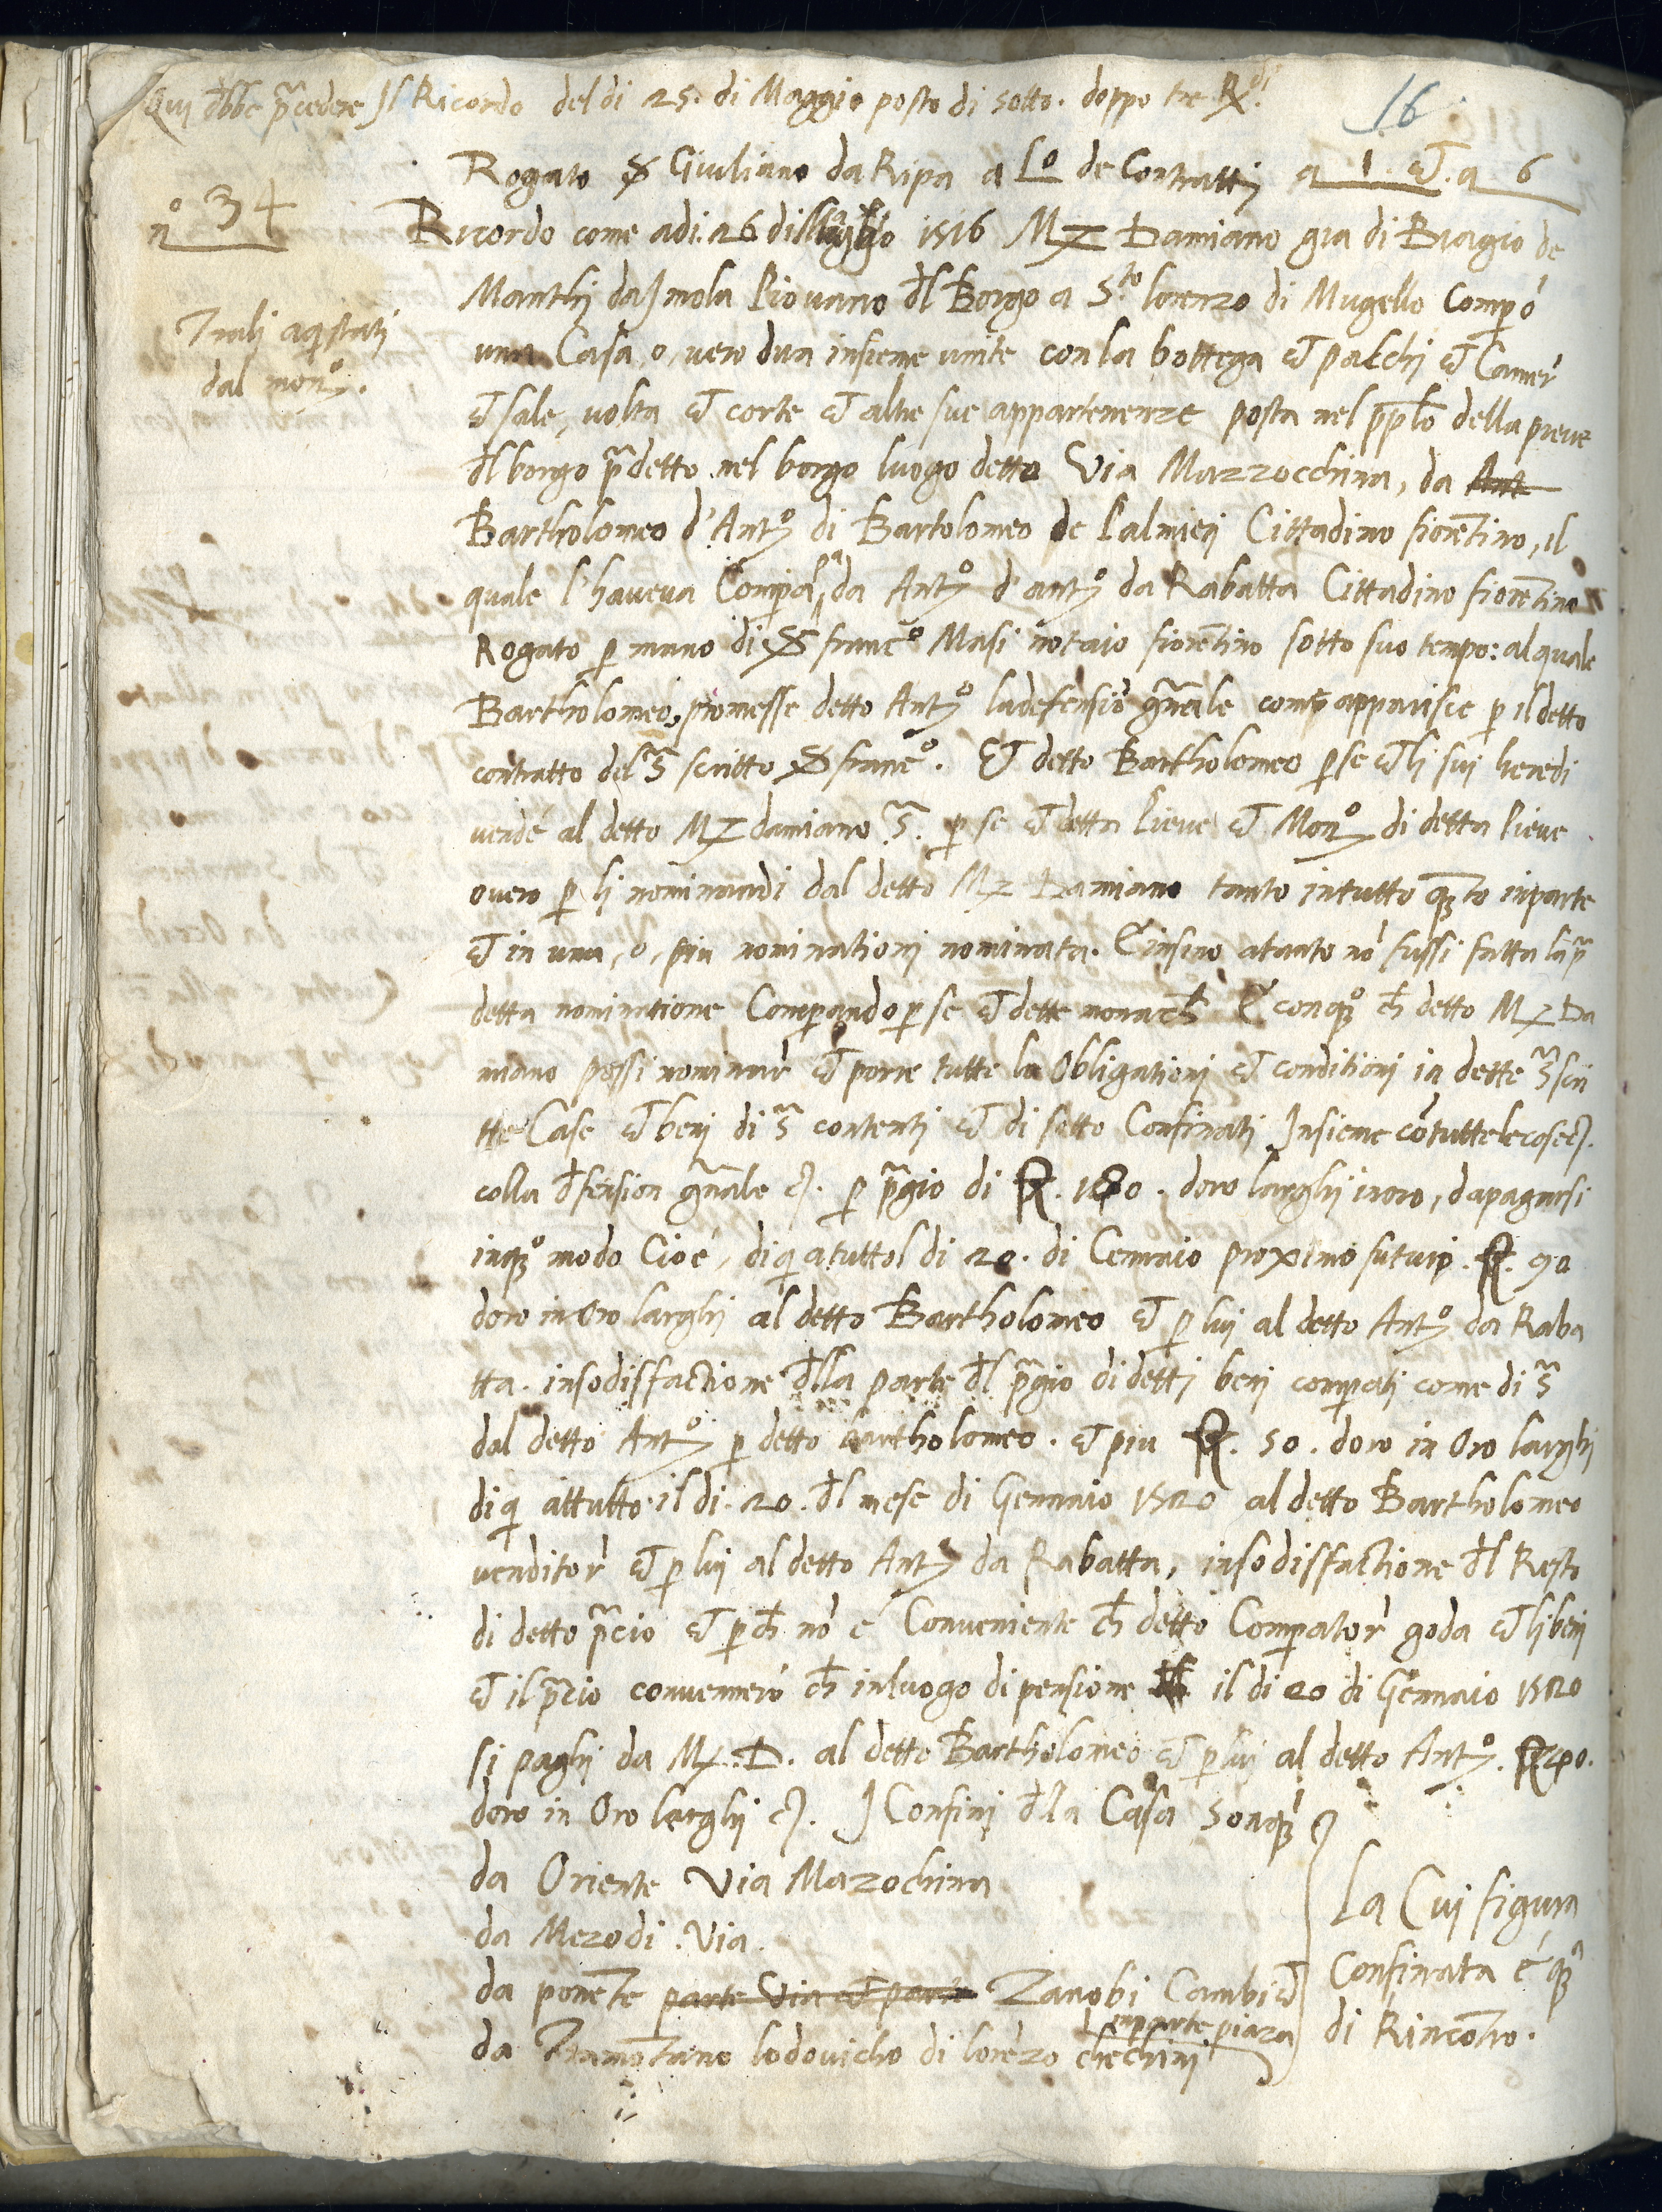 Qui debbe p̃cedere Il Ricordo del di 25. di Maggio posto di sotto. doppo tre Rdi.
16
Rogato S Giuliano da Ripa a Lo de Contratti a 1. et. a 6
no 34
Ricordo come adi. 26 di 1516 Mz Damiano gia di Biagio de
Manthj da Imola Piovano dl Borgo a Sto lorenzo di Mugello Comp̃o
una Casa, o, vero dua insieme unite con la bottega et palchi et Camer̃
et sale, volta et corte et altre sue appartenenze posta nel pplo della pieve
dl borgo p̃detto nel borgo luogo detto Via Mazzocchina, da Ant
Bartholomeo d'Anto di Bartolomeo de Palmierj Cittadino fiorẽtino, il
quale l'haveva Compata da Anto d'anto da Rabatta Cittadino fiorẽtino
Rogato p mano di S franco Masi notaio fiorẽtino sotto suo tempo: al quale
Bartholomeo, promesse detto Anto la defensiõ gñale come apparisce p il detto
contratto del S̃ scritto S franco. Et detto Bartholomeo p se et li sui heredi
vendé al detto Mz damiano S̃. p se et detta Pieve et Mono di detta Pieve
overo p li nominandi dal detto Mz Damiano tanto in tutto qto inparte
et in una, o, piu nominationj nominata. E insino atanto nõ fussi fatta la p̃
detta nominatione Comprando p se et dette monache E con qo ch detto Mz Da
miano possi nominar̃ et porre tutte le Obligationj et conditionj in dette S̃scri
tte Case et benj di S̃ contentj et di sotto Confinatj Insieme cõ tutte le cose etc.
colla dfension gñale etc. p p̃gio di F. 180. doro larghj in oro, da pagarsi
in qo modo Cioé, di q̃ a tutto l di 20. di Gennaio proximo futuro. F. 90
doro in Oro larghj al detto Bartholomeo et p lui al detto Anto da Raba
tta. insodisfactione dlla parte dl p̃gio di dettj benj compatj come di S̃
dal detto Anto p detto bartholomeo. et piu F. 50. doro in Oro larghj
di q̃ attutto il di. 20. dl mese di Gennaio 1520 al detto Bartholomeo
venditor̃ et p lui al detto Anto da Rabatta, insodisfactione dl Resto
di detto p̃cio et p ch nõ é Conveniente ch detto Comperator̃ goda et li benj
et il p̃zio convennerõ ch in luogo di pensione il di 20 di Gennaio 1520
si paghj da Mz. D. al detto Bartholomeo et p lui al detto Anto. F 40.
doro in Oro larghj etc. I Confinj dla Casa sono q̃ etc
da Oriente Via Mazochina
da Mezodi. Via
da ponẽte parte Via et parte Zanobi Cambi et
inparte piaza
da Tramõtano lodovicho di lorẽzo chechinj
La Cuj figura
Confinata é q̃
di Rincõtro.
Tralj aqistatj
dal mono.